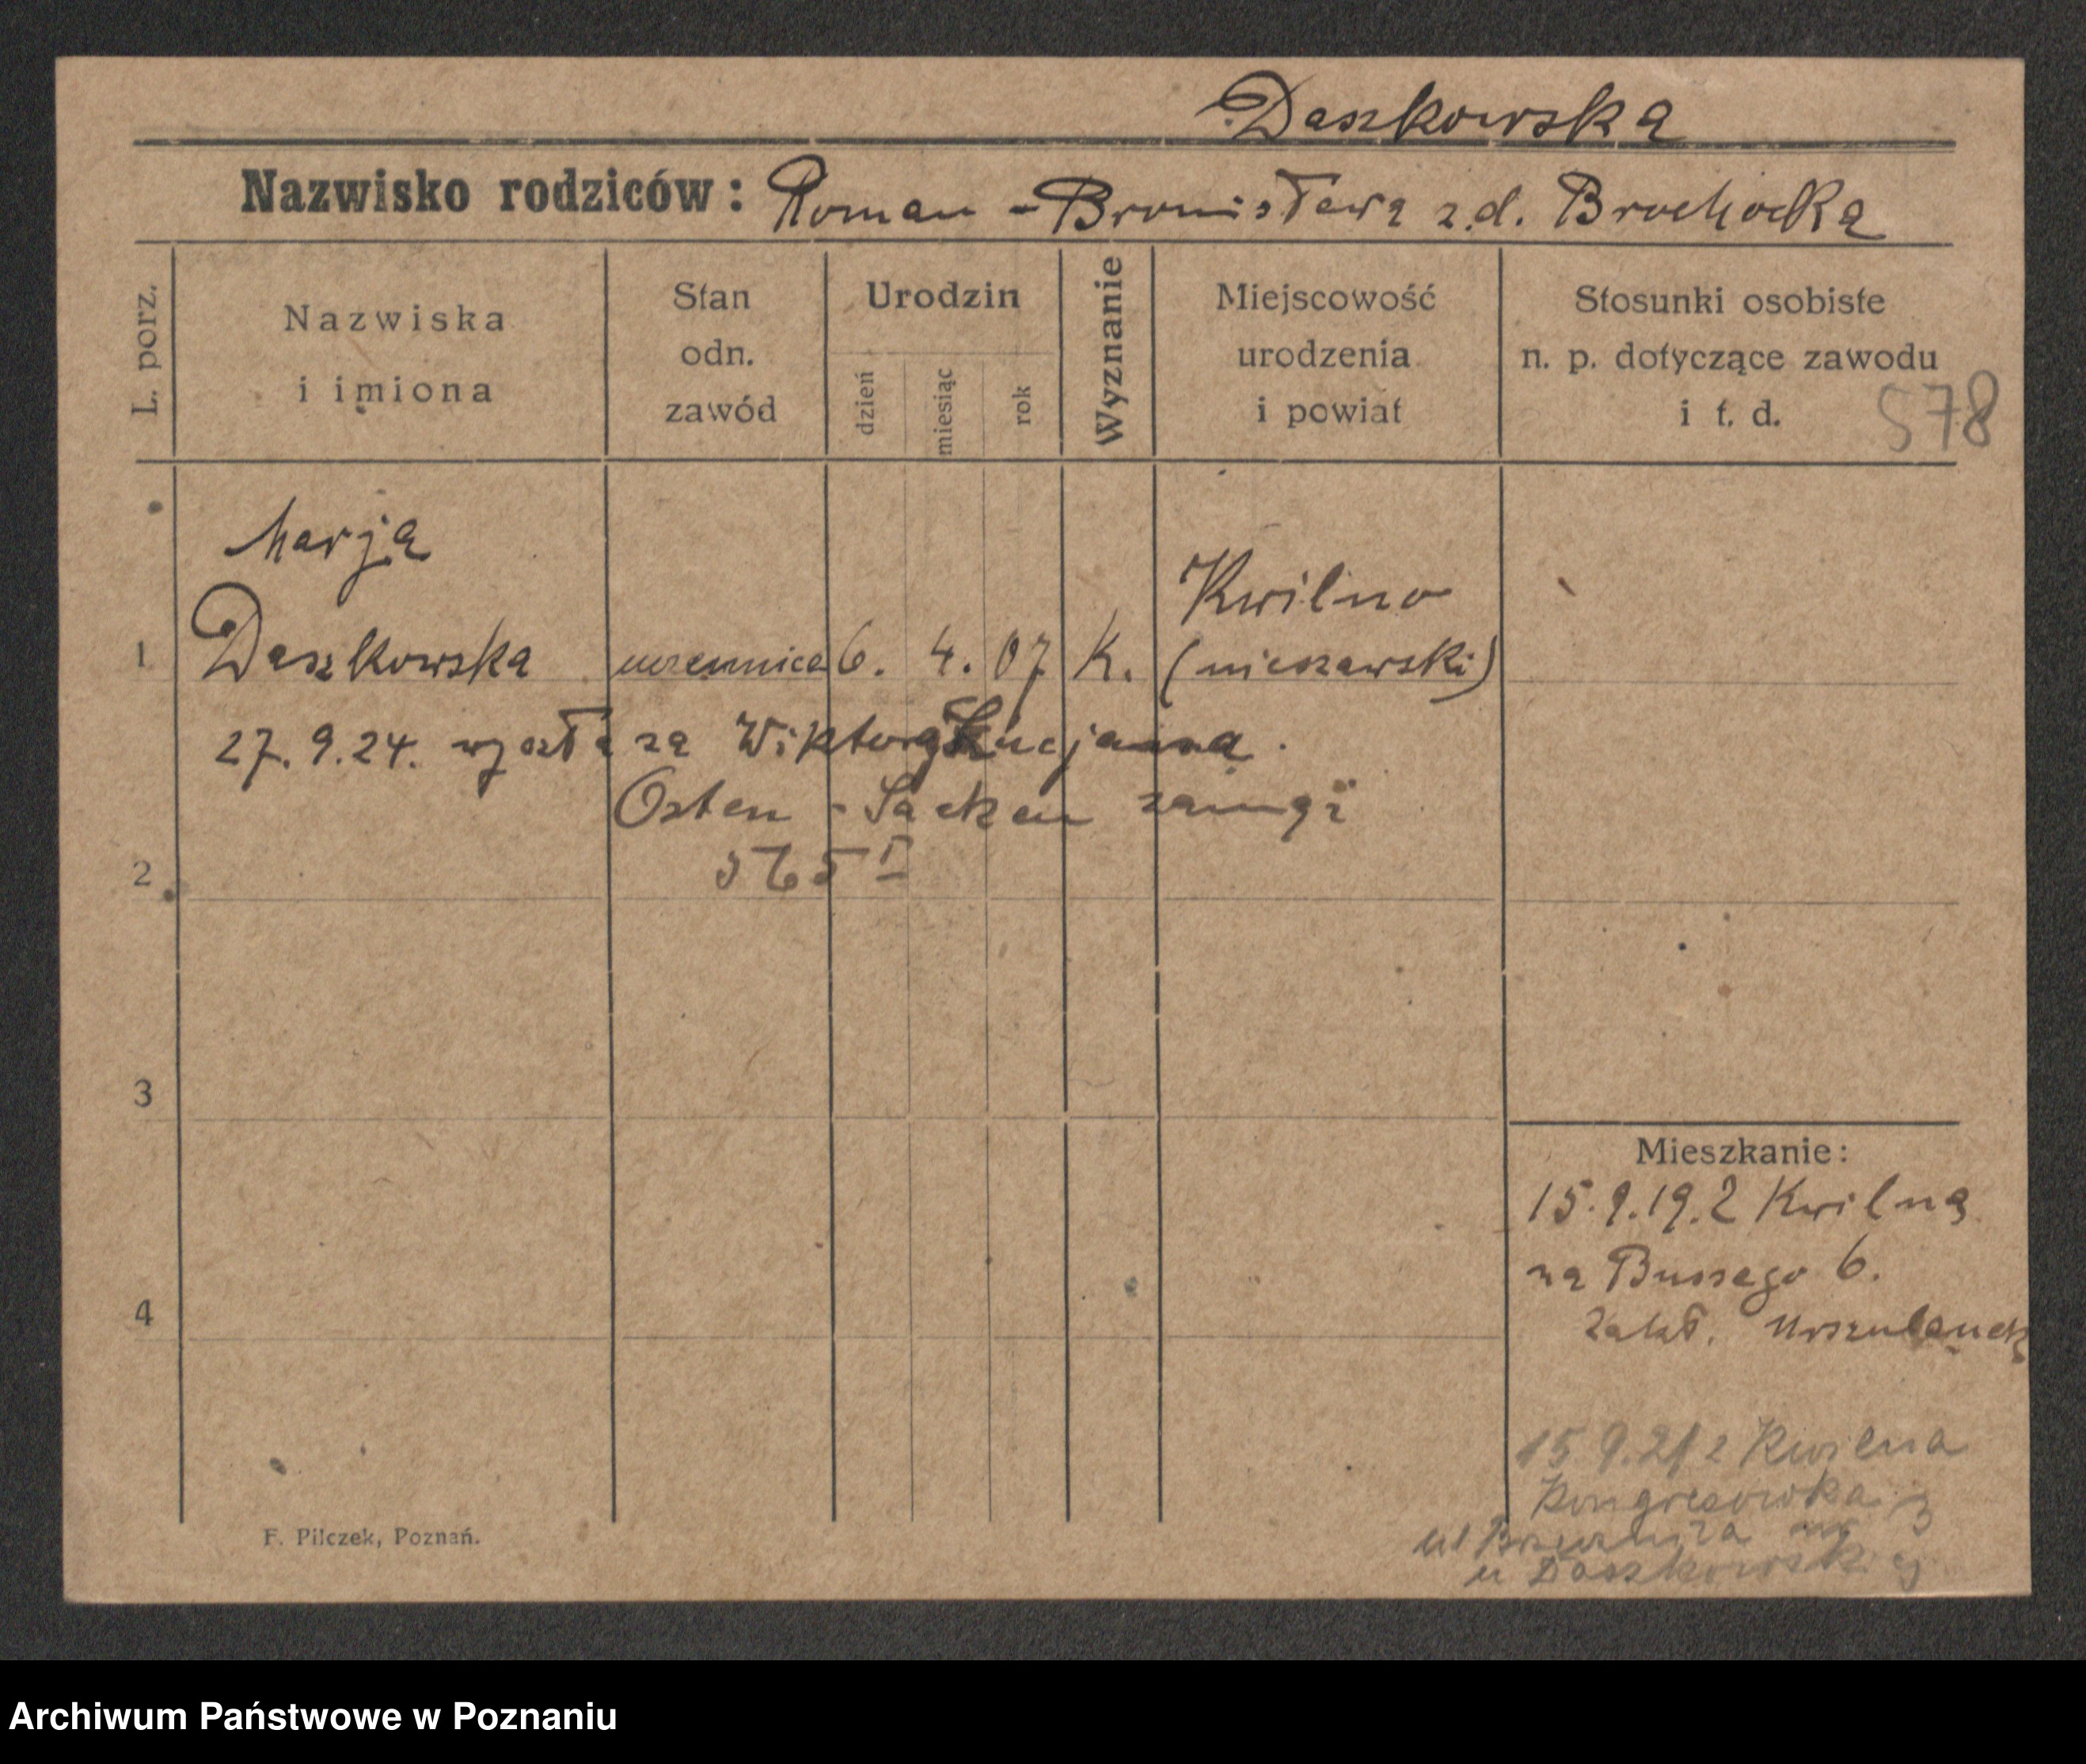 Daszkowska
Nazwisko rodziców: Roman - Bronisława z.d. Brochocka
L. porz.
Nazwiska
i imiona
Stan
odn.
zawód
Urodzin
dzień
miesiąc
rok
Wyznanie
Miejscowość
urodzenia
i powiat
Stosunki osobiste
n. p. dotyczące zawodu
i t. d.
578
Marja
Kwilno
1 Daszkowska uczennica 6. 4. 07 K. (nieszawski)
27.9.24. wyszła za Wiktora
Osten - Sacken
565 I
2
3
4
Mieszkanie:
15.9.19. z Kwilna
na Bussego 6.
Zakł. Urszulanek
15.9.21 z Kwilna
Kongresówka
ul
u Daszkowskiej
F. Pilczek, Poznań.
Archiwum Państwowe w Poznaniu